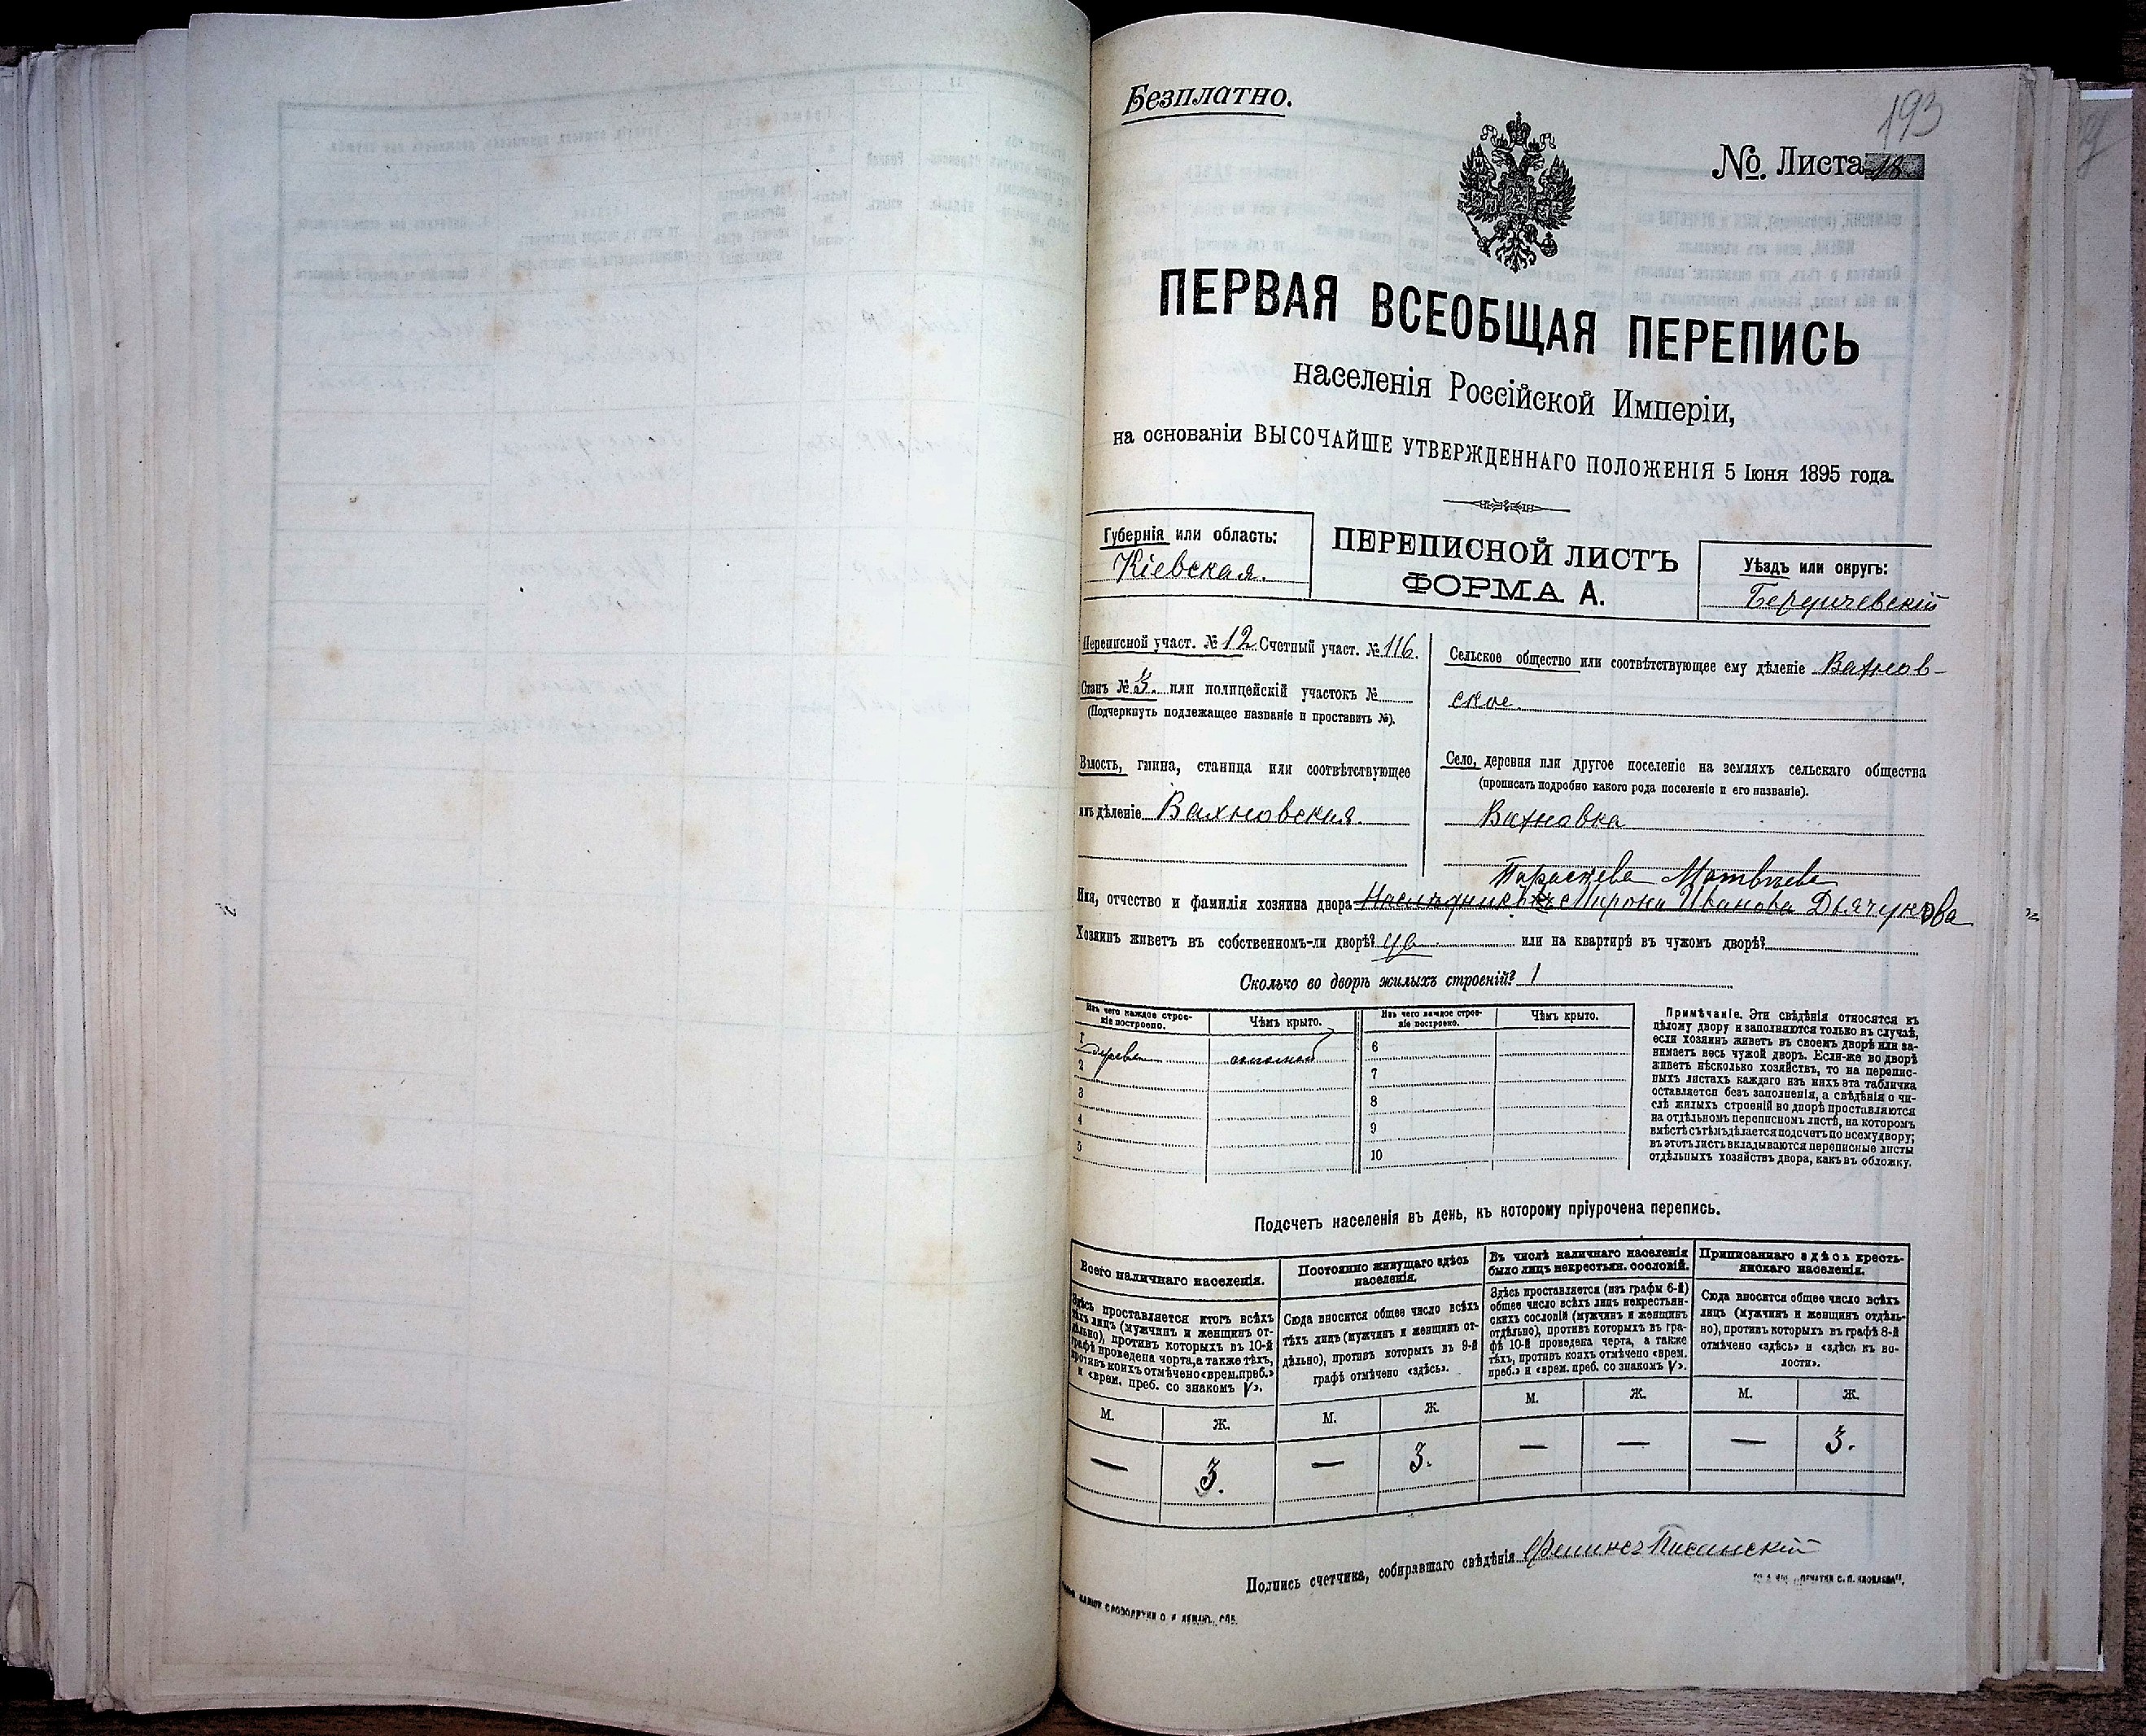 Безплатно.
193
№. Листа 18
ПЕРВАЯ ВСЕОБЩАЯ ПЕРЕПИСЬ
населенія Россійской Имперіи,
на основаніи ВЫСОЧАЙШЕ УТВЕРЖДЕННАГО ПОЛОЖЕНІЯ 5 Іюня 1895 года.
Губернія или область:
Кіевская.
ПЕРЕПИСНОЙ ЛИСТЪ
ФОРМА А.
Уѣздъ или округъ:
Бердичевскій
Переписной участ. № 12 Счетный участ. № 116.
Станъ № 3. или полицейскій участокъ №
(Подчеркнуть подлежащее названіе и проставить №).
Волость, гмина, станица или соотвѣтствующее
имъ дѣленіе Вахновская.
Сельское общество или соотвѣтствующее ему дѣленіе Вахнов-
ское.
Село, деревня или другое поселеніе на земляхъ сельскаго общества
(прописать подробно какого рода поселеніе и его названіе).
Вахновка
Параскева Матвѣева
Имя, отчество и фамилія хозяина двора Мирона Иванова Дьячукова
Хозяинъ живетъ въ собственномъ-ли дворѣ? да или на квартирѣ въ чужомъ дворѣ?
Сколько во дворѣ жилыхъ строеній? 1
Изъ чего каждое строе-
ніе построено.
Чѣмъ крыто.
Изъ чего каждое строе-
ніе построено.
Чѣмъ крыто.
1 дерева соломой
2
3
4
5
6
7
8
9
10
Примѣчаніе. Эти свѣдѣнія относятся къ
цѣлому двору и заполняются только въ случаѣ,
если хозяинъ живетъ въ своемъ дворѣ или за-
нимаетъ весь чужой дворъ. Если-же во дворѣ
живетъ нѣсколько хозяйствъ, то на перепис-
ныхъ листахъ каждаго изъ нихъ эта табличка
оставляется безъ заполненія, а свѣдѣнія о чи-
слѣ жилыхъ строеній во дворѣ проставляются
на отдѣльномъ переписномъ листѣ, на которомъ
вмѣстѣ съ тѣмъ дѣлается подсчетъ по всему двору;
въ этотъ листъ вкладываются переписные листы
отдѣльныхъ хозяйствъ двора, какъ въ обложку.
Подсчетъ населенія въ день, къ которому пріурочена перепись.
Всего наличнаго населенія.
Здѣсь проставляется итогъ всѣхъ
тѣхъ лицъ (мужчинъ и женщинъ от-
дѣльно), противъ которыхъ въ 10-й
графѣ проведена черта, а также тѣхъ,
противъ коихъ отмѣчено «врем. преб.»
и «врем. преб. со знакомъ V».
Постоянно живущаго здѣсь
населенія.
Сюда вносится общее число всѣхъ
тѣхъ лицъ (мужчинъ и женщинъ от-
дѣльно), противъ которыхъ въ 9-й
графѣ отмѣчено «здѣсь».
Въ числѣ наличнаго населенія
было лицъ некрестьян. сословій.
Здѣсь проставляется (изъ графы 6-й)
общее число всѣхъ лицъ некрестьян-
скихъ сословій (мужчинъ и женщинъ
отдѣльно), противъ которыхъ въ гра-
фѣ 10-й проведена черта, а также
тѣхъ, противъ коихъ отмѣчено «врем.
преб.» и «врем. преб. со знакомъ V».
Приписаннаго здѣсь кресть-
янскаго населенія.
Сюда вносится общее число всѣхъ
лицъ (мужчинъ и женщинъ отдѣль-
но), противъ которыхъ въ графѣ 8-й
отмѣчено «здѣсь» и «здѣсь къ во-
лости».
М. Ж. М. Ж. М. Ж. М. Ж.
— 3. — 3. — — — 3.
Подпись счетчика, собиравшаго свѣдѣнія Феликсъ Писанскій